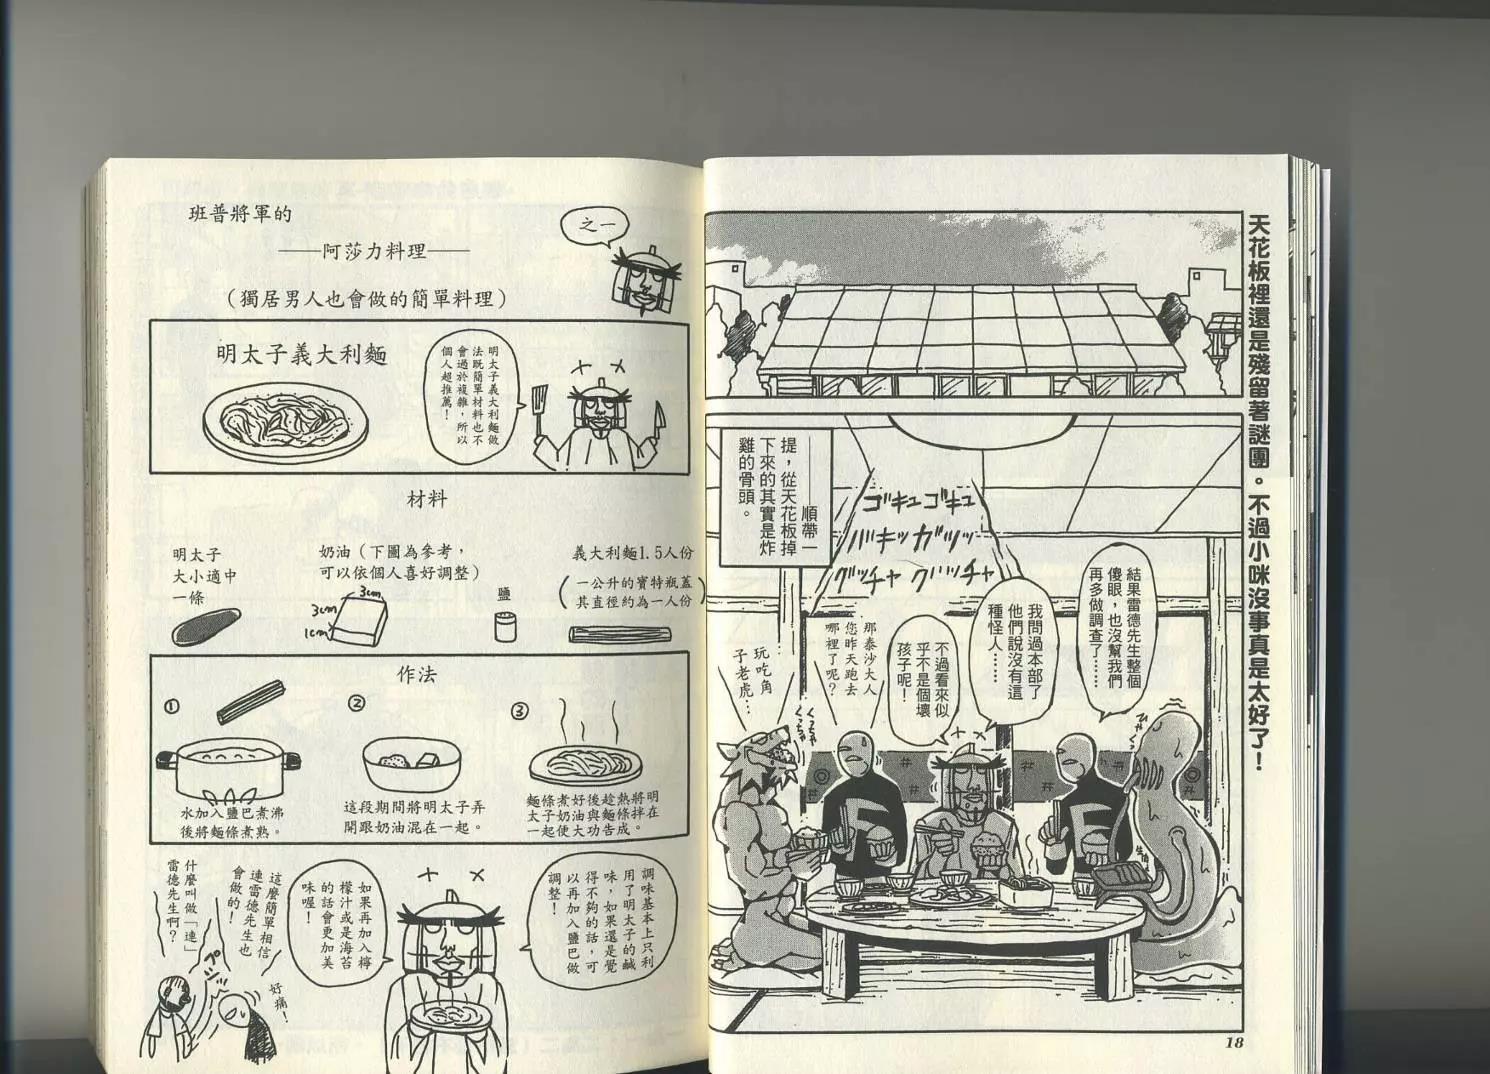 天花板裡還是殘留著謎團。不過小咪沒事真是太好了！
——順帶一
提，從天花板掉
下來的其實是炸
雞的骨頭。
ゴキュゴキュ
バキッガツッ
グッチャグッチャ
結果雷德先生整個
傻眼，也沒幫我們
再多做調查了……
我問過本部了
他們說沒有這
種怪人……
不過看來似
乎不是個壞
孩子呢！
那泰沙大人
您昨天跑去
哪裡了呢？
玩吃角
子老虎…
18
班普將軍的
之一
——阿莎力料理——
（獨居男人也會做的簡單料理）
明太子義大利麵
明太子義大利麵做
法既簡單材料也不
會過於複雜，所以
個人超推薦！
材料
明太子
大小適中
一條
奶油（下圖為參考，
可以依個人喜好調整）
3cm
3cm
1cm
鹽
義大利麵1.5人份
（一公升的寶特瓶蓋
其直徑約為一人份）
作法
①
水加入鹽巴煮沸
後將麵條煮熟。
②
這段期間將明太子弄
開跟奶油混在一起。
③
麵條煮好後趁熱將明
太子奶油與麵條拌在
一起便大功告成。
調味基本上只利
用了明太子的鹹
味，如果還是覺
得不夠的話，可
以再加入鹽巴做
調整！
如果再加入檸
檬汁或是海苔
的話會更加美
味喔！
這麼簡單相信
連雷德先生也
會做的！
什麼叫做「連」
雷德先生啊？
好痛！